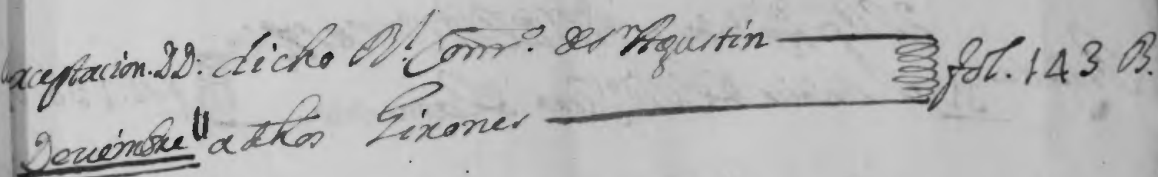 aceptacion. DD. dicho Rl. Conv.º de Sn Agustin fol. 143 B.
Deziembre 11 a dhos Girones